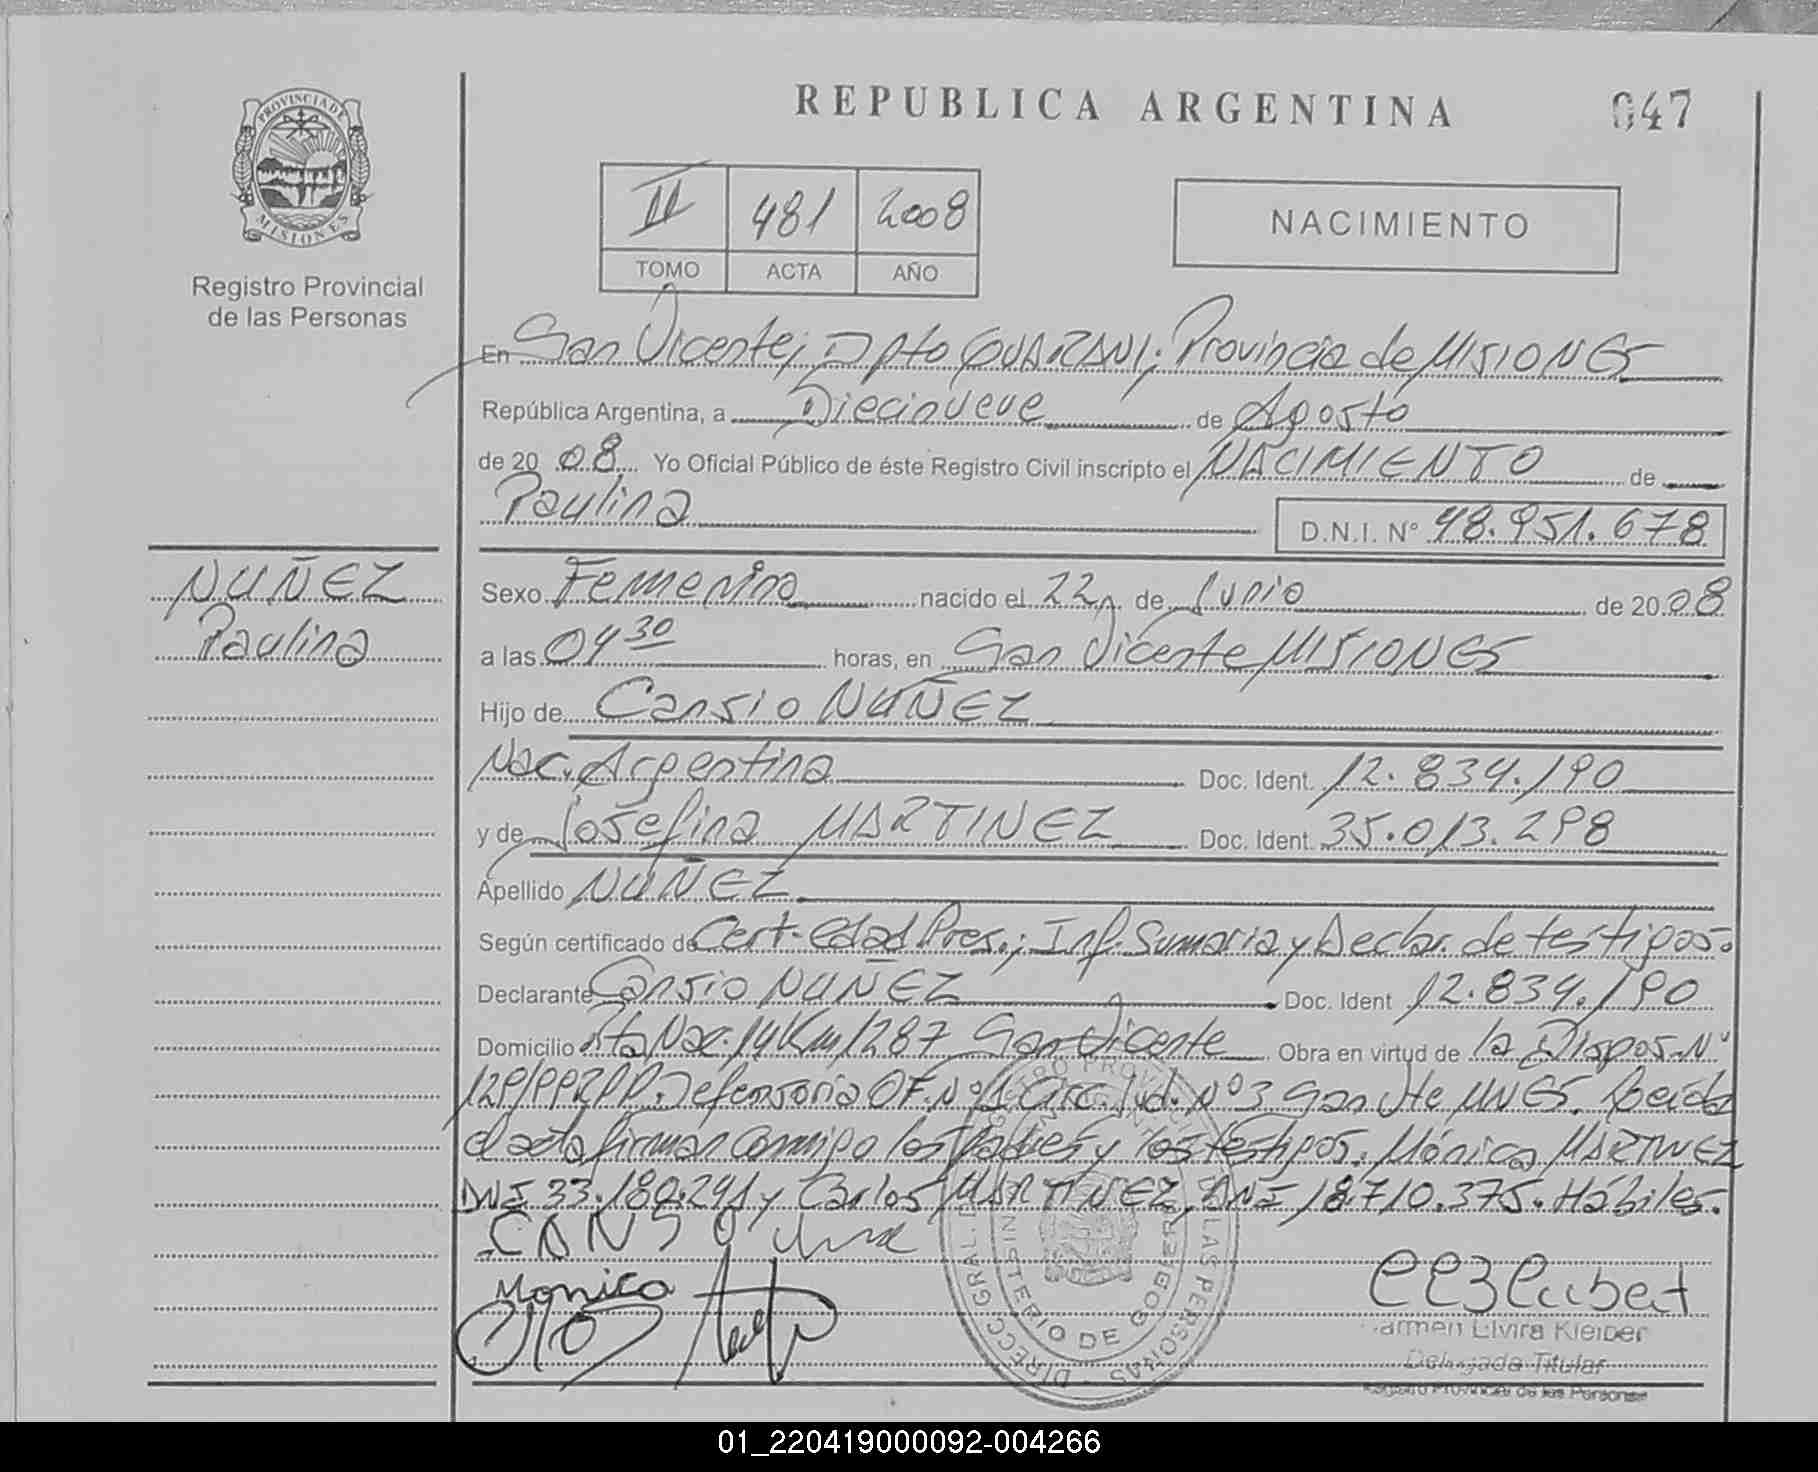 REPUBLICA ARGENTINA
047
PROVINCIA DE MISIONES
Registro Provincial
de las Personas
II 481 2008
TOMO ACTA AÑO
NACIMIENTO
En San Vicente; Dpto GUARANI; Provincia de MISIONES
República Argentina, a Diecinueve de Agosto
de 20 08 Yo Oficial Público de éste Registro Civil inscripto el NACIMIENTO de
Paulina
D.N.I. N° 48.951.678
NUÑEZ
Paulina
Sexo Femenino nacido el 22 de Junio de 20 08
a las 04 30 horas, en San Vicente MISIONES
Hijo de Cansio NUÑEZ
Nac. Argentina Doc. Ident. 12.834.190
y de Josefina MARTINEZ Doc. Ident. 35.013.298
Apellido NUÑEZ
Según certificado de Cert. edad Pres.; Inf. Sumaria y Declar. de testigos.
Declarante Cansio NUÑEZ Doc. Ident 12.834.190
Domicilio Rta Nac. 14 Km 1287 San Vicente Obra en virtud de la Dispos. N°
Defensoria OF. N°1 Circ. Jud. N°3 San Vte MNES. Leida
el acta firman conmigo los Padres y los testigos. Mónica MARTINEZ
DNI 33.180.241 y Carlos MARTINEZ, DNI 18.710.375. Hábiles.
CANSO
Monica
DIRECC. GRAL. DEL REGISTRO PROVINCIAL DE LAS PERSONAS
MINISTERIO DE GOBIERNO
Carmen Elvira Kleiber
Delegada Titular
Registro Provincial de las Personas
01_220419000092-004266